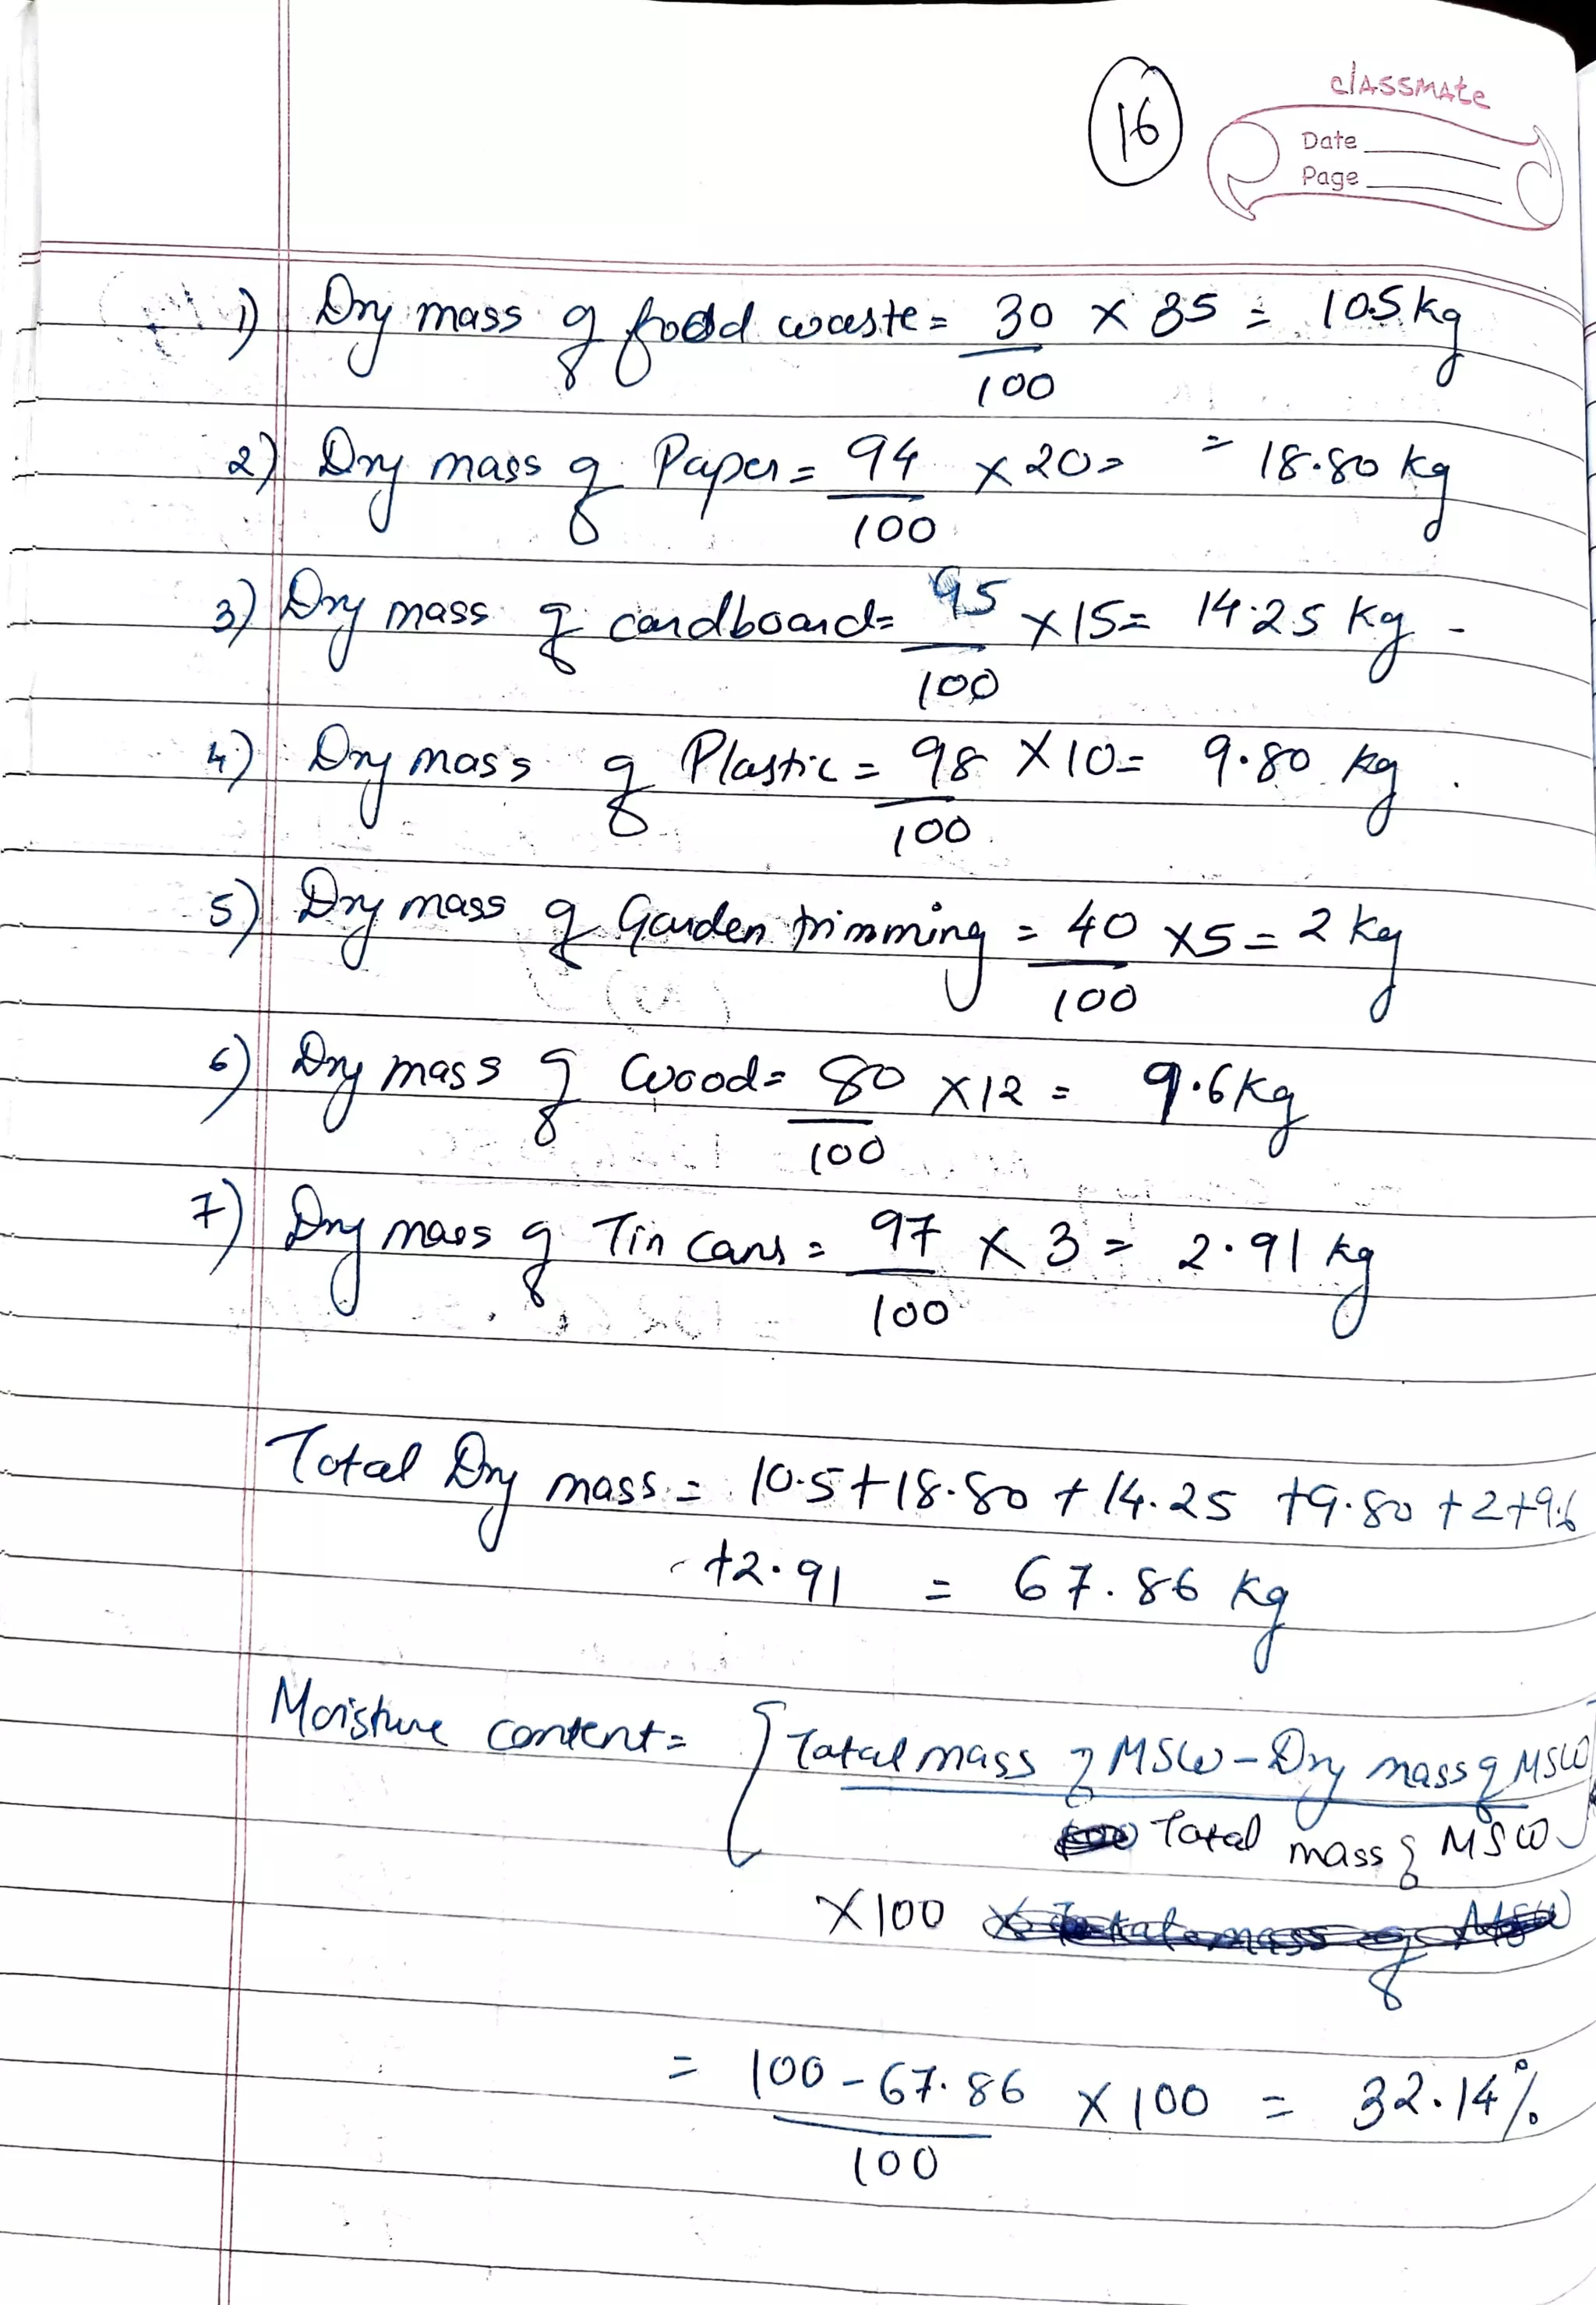 16
classmate
Date
Page
1) Dry mass of food waste = 30/100 × 35 = 10.5 kg
2) Dry mass of Paper = 94/100 × 20 = = 18.80 kg
3) Dry mass of cardboard = 95/100 × 15 = 14.25 kg -
4) Dry mass of Plastic = 98/100 × 10 = 9.80 kg.
5) Dry mass of Garden trimming = 40/100 × 5 = 2 kg
6) Dry mass of Wood = 80/100 × 12 = 9.6 kg
7) Dry mass of Tin cans = 97/100 × 3 = 2.91 kg
Total Dry mass = 10.5 + 18.80 + 14.25 + 9.80 + 2 + 9.6
+ 2.91 = 67.86 kg
Moisture content = [Total mass of MSW - Dry mass of MSW
Total mass of MSW]
× 100
= 100 - 67.86/100 × 100 = 32.14%